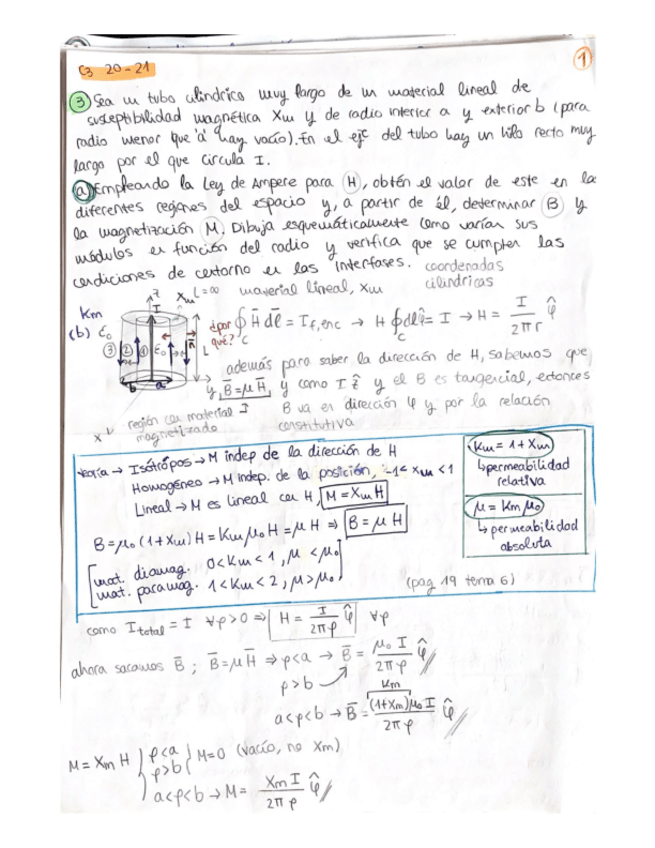 C3 20-21
1
3 Sea un tubo cilíndrico muy largo de un material lineal de
susceptibilidad magnética Xm y de radio interior a y exterior b (para
radio menor que 'a' hay vacío). En el eje del tubo hay un hilo recto muy
largo por el que circula I.
a) Empleando la Ley de Ampere para H, obtén el valor de este en las
diferentes regiones del espacio y, a partir de él, determinar B y
la magnetización M. Dibuja esquemáticamente como varían sus
módulos en función del radio y verifica que se cumplen las
condiciones de contorno en las interfases. coordenadas
cilíndricas
z Xm L=∞ material lineal, Xm
Km
(b) ε₀
I
③ ② ① ε₀ n̄ L
b a y
x
¿por qué? ∮c H̄ dl̄ = If,enc → H ∮c dl = I → H = I/2πr φ̂
además para saber la dirección de H, sabemos que
B̄ = μH̄, y como I ẑ y el B es tangencial, entonces
B va en dirección φ y por la relación
constitutiva
región con material
magnetizado
teoría → Isótropos → M indep de la dirección de H
Homogéneo → M indep. de la posición, -1 < Xm < 1
Lineal → M es lineal con H, M = Xm H
B = μ₀ (1+Xm) H = Km μ₀ H = μH ⇒ B = μH
mat. diamag. 0<Km<1, μ<μ₀
mat. paramag. 1<Km<2, μ>μ₀
Km = 1 + Xm
↳ permeabilidad
relativa
μ = Km μ₀
↳ permeabilidad
absoluta
(pag 19 tema 6)
como Itotal = I ∀ρ>0 ⇒ H = I/2πρ φ̂ ∀ρ
ahora sacamos B̄; B̄ = μH̄ ⇒ ρ<a → B̄ = μ₀ I/2πρ φ̂
ρ>b
Km
a<ρ<b → B̄ = (1+Xm)μ₀ I/2πρ φ̂
M = Xm H { ρ<a
ρ>b } M=0 (vacío, no Xm)
a<ρ<b → M = Xm I/2πρ φ̂